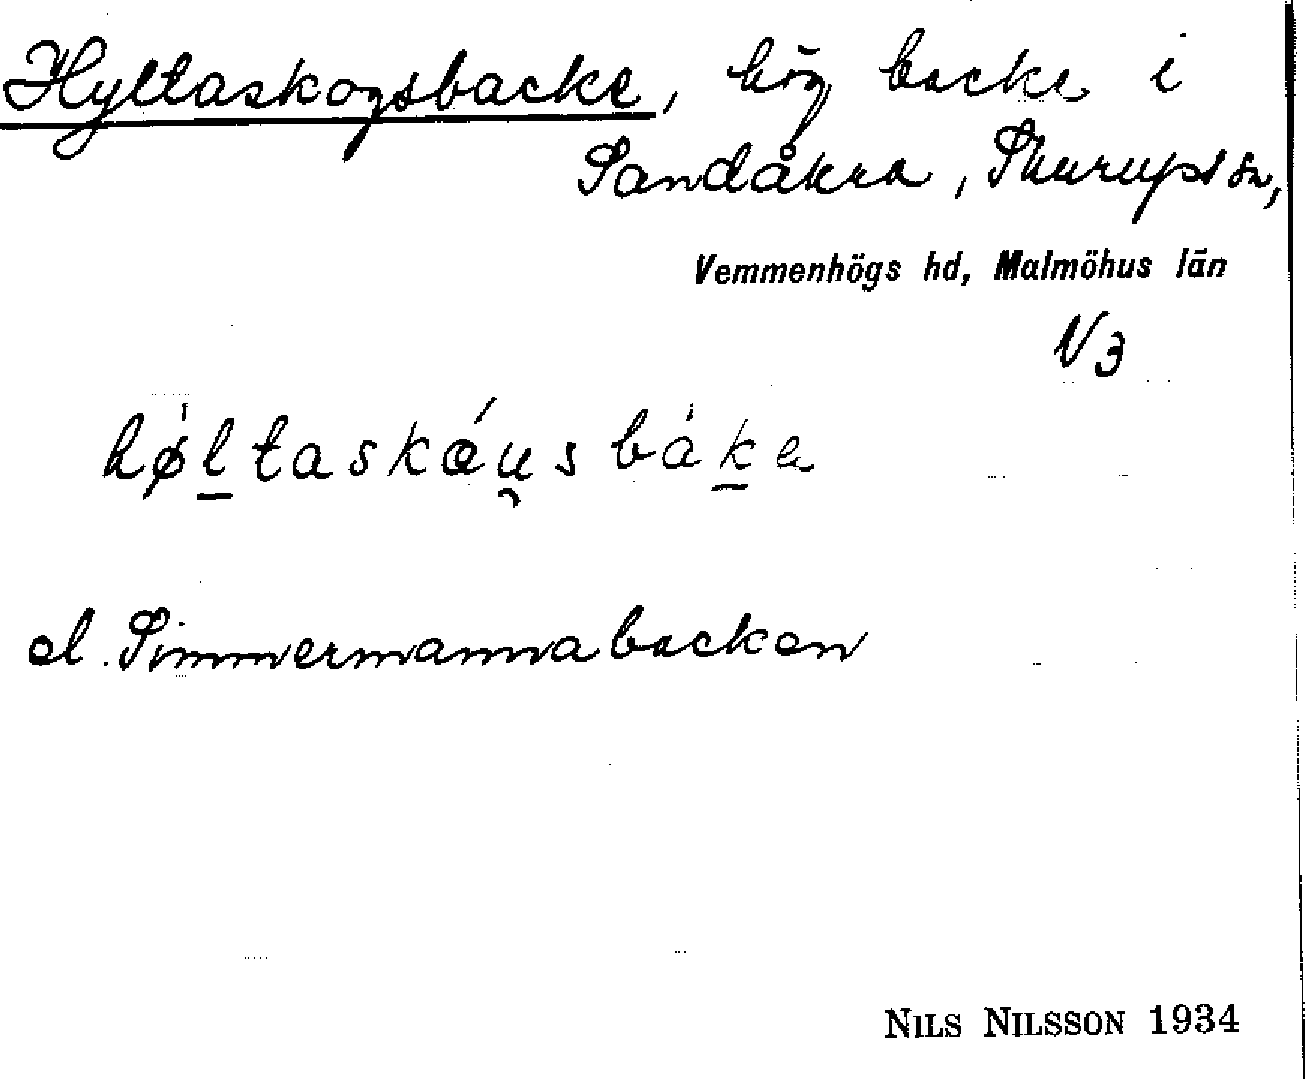 Hyltaskogsbacke, hög backe i
Sandåkra, Skurups sn,
Vemmenhögs hd, Malmöhus län
V3
høltaskáu̯sbáka
el. Timmermannabacken
NILS NILSSON 1934